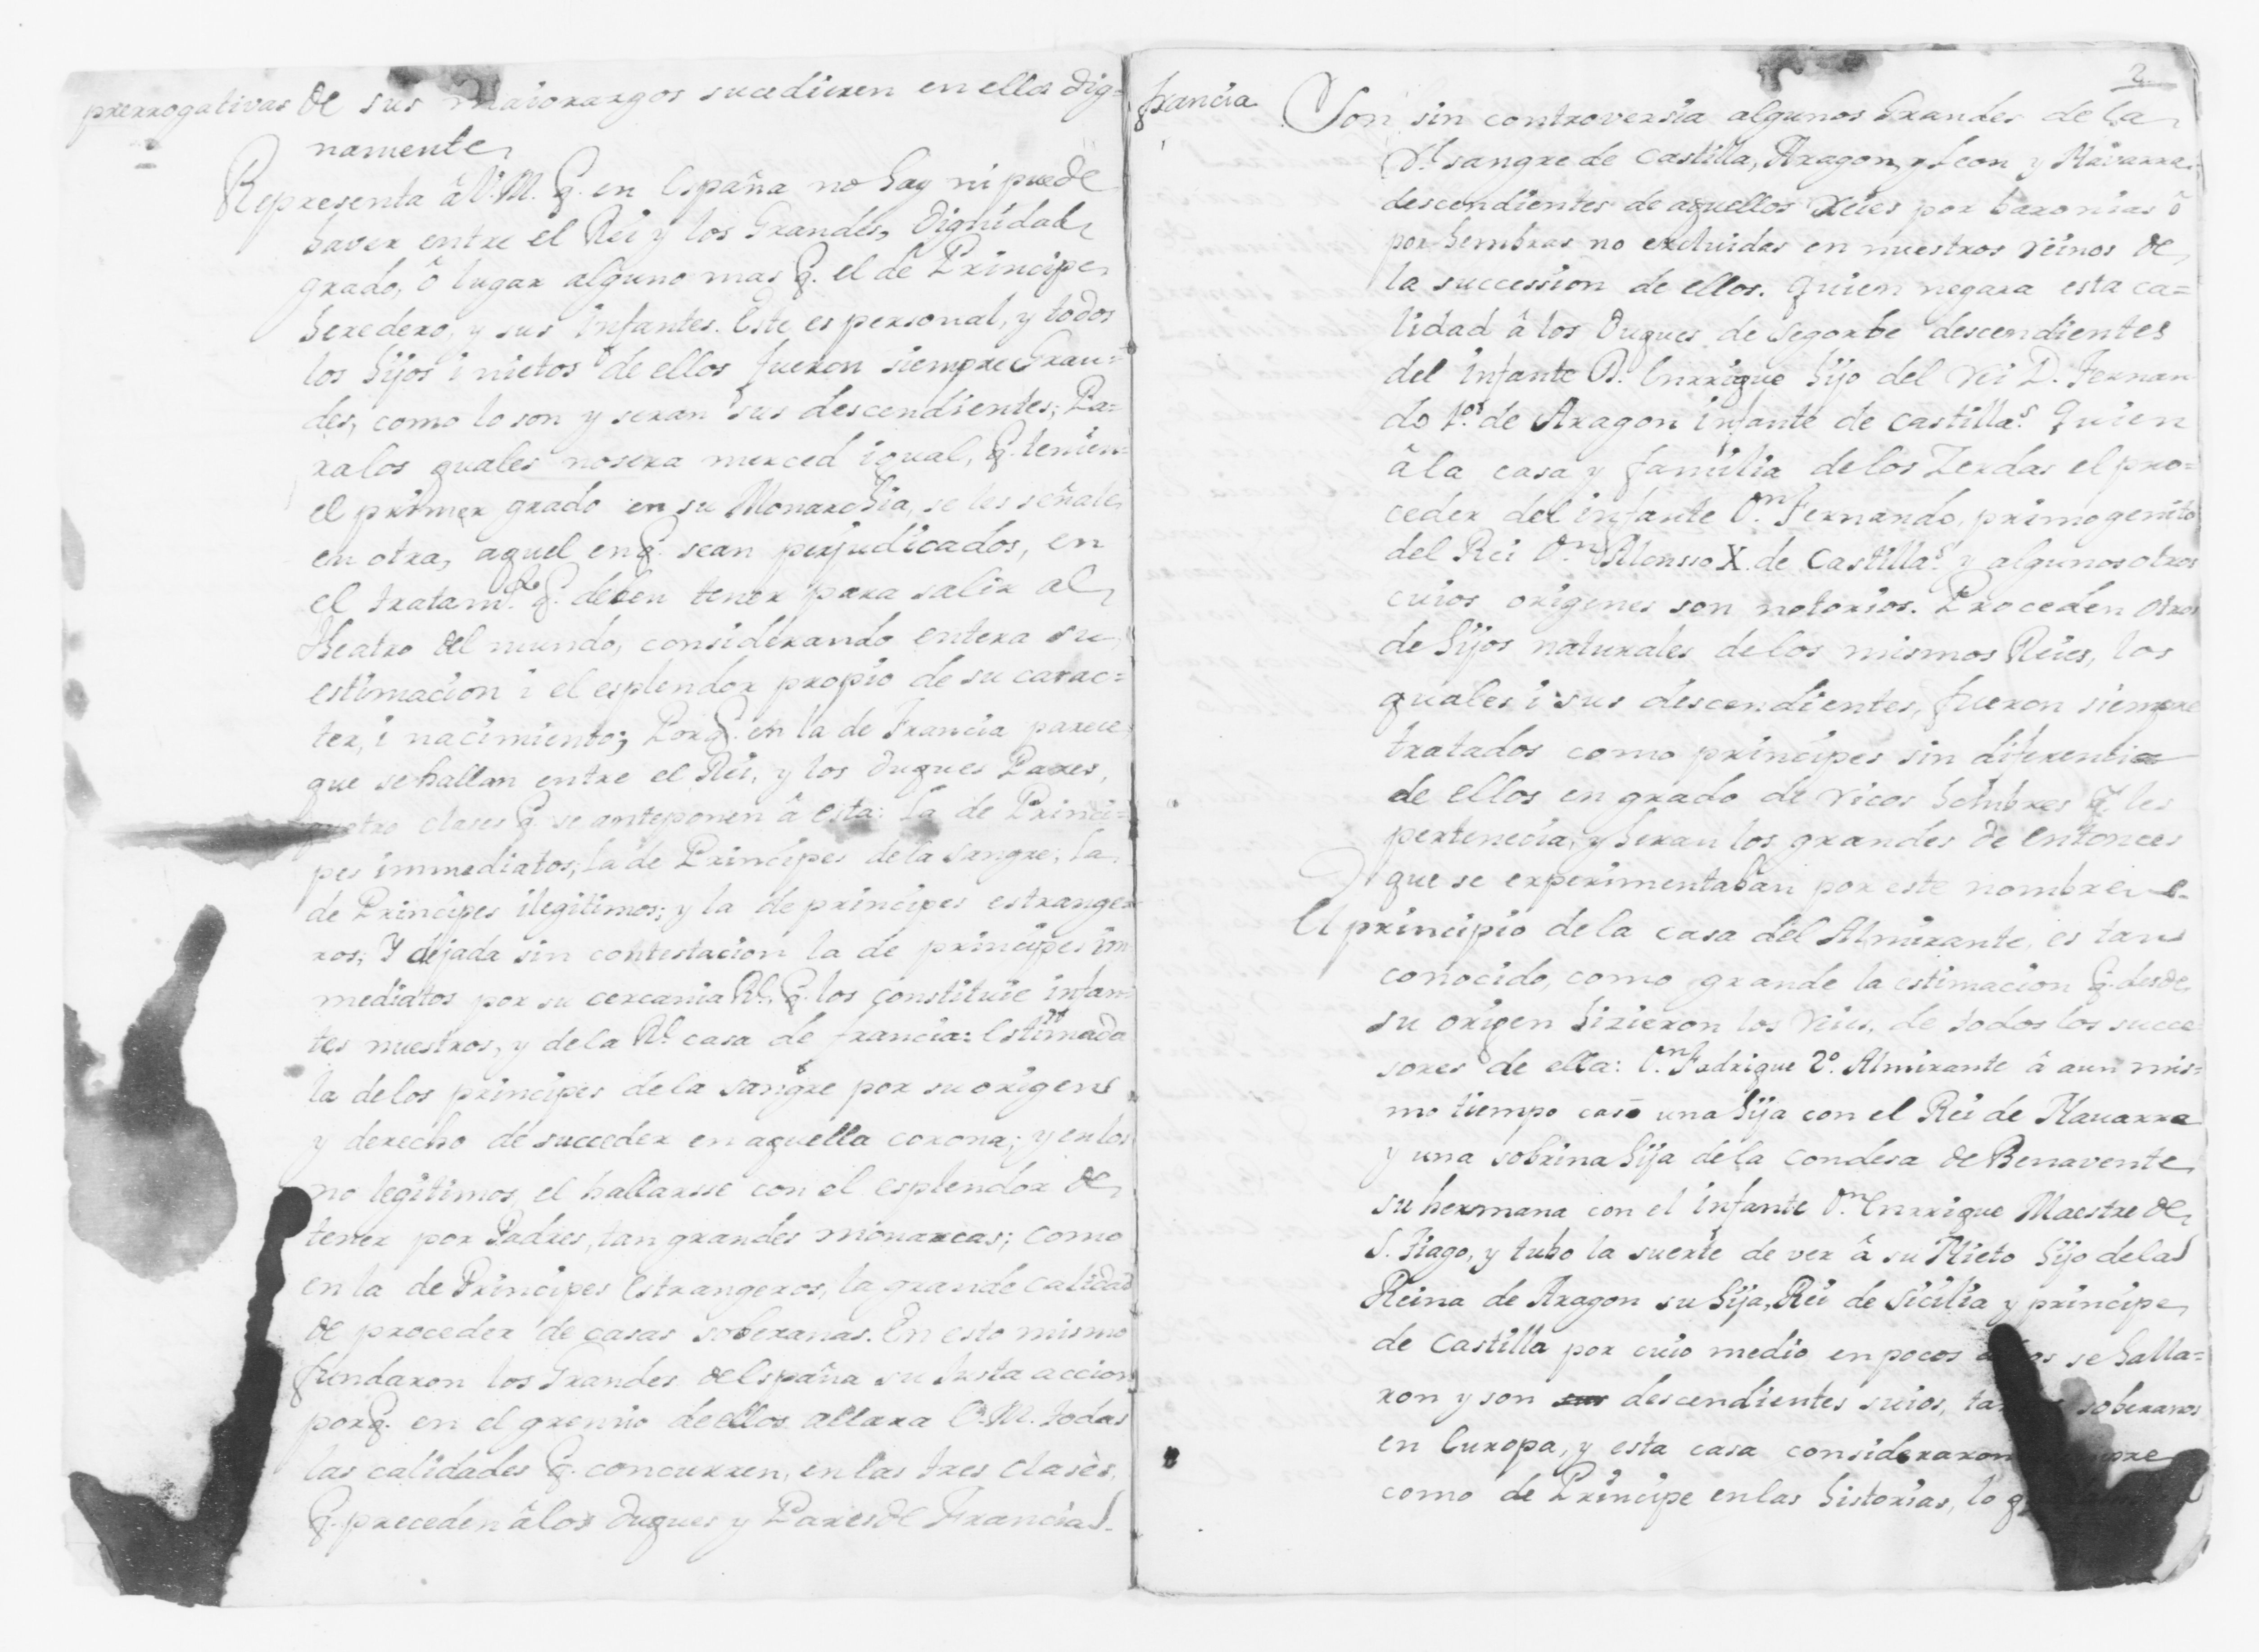 prerrogativas de sus maiorazgos sucedieren en ellos dig=
namente
Representa â V.M. q. en España no hay ni puede
haver entre el Rei y los Grandes, Dignidad,
grado, ô lugar alguno mas q. el de Principe
heredero, y sus infantes. Este es personal, y todos
los hijos i nietos de ellos fueron siempre Gran=
des, como lo son y seran sus descendientes; Pa=
ralos quales nosera merced igual, q. tenien=
el primer grado en su Monarchia, se les señale
en otra, aquel en q. sean perjudicados, en
el tratam.to q. deben tener para salir al
theatro del mundo, considerando entera su
estimacion i el esplendor propio de su carac=
ter, i nacimiento; Porq. en la de Francia parece
que se hallan entre el Rei, y los Duques Pares,
quatro clases q. se anteponen â esta: La de Princi=
pes immediatos; La de Principes dela sangre; La
de Principes ilegitimos; y la de principes estrange
ros; Y dejada sin contestacion la de principes im
mediatos por su cercania Rl. q. los constituie infan=
tes nuestros, y dela Rl. casa de francia: Estimada
la delos principes dela sangre por su origen
y derecho de succeder en aquella corona; y en los
no legitimos, el hallarsse con el esplendor de
tener por Padres, tan grandes monarcas; como
en la de Principes Estrangeros, la grande calidad
de proceder de casas soberanas. En esto mismo
fundaron los Grandes de España su Justa accion
porq. en el gremio deellos allara V.M. todas
las calidades q. concurren, en las tres clases,
q. preceden âlos Duques y Pares de Francia.
2
francia
Son sin controversia algunos Grandes de la
Rl. sangre de Castilla, Aragon, y Leon y Navarra,
descendientes de aquellos Reies por baronias ô
por hembras no excluidas en nuestros reinos de
la succession de ellos. Quien negara esta ca=
lidad â los Duques de Segorbe descendientes
del infante D. Enrrique hijo del rei D. Fernan
do 1.º de Aragon infante de Castilla? Quien
â la casa y familia delos Zerdas el pro=
ceder del infante D.n Fernando, primogenito
del Rei D.n Alonsso X. de Castilla? y algunos otros
cuios origenes son notorios. Proceden otros
de hijos naturales delos mismos Reies, los
quales i sus descendientes, fueron siempre
tratados como principes sin diferencia
de ellos en grado de ricos hombres q. les
pertenecia, y heran los grandes de entonces
que se experimentaban por este nombre
El principio dela casa del Almirante, es tan
conocido, como grande la estimacion q. desde
su origen hizieron los reies, de todos los succe
sores de ella: D.n Fadrique 2º. Almirante â aun mis=
mo tiempo casô una hija con el Rei de Navarra
y una sobrina hija dela Condesa de Benavente
su hermana con el infante D.n Enrrique Maestre de
S. Tiago, y tubo la suerte de ver â su Nieto hijo dela
Reina de Aragon su hija, Rei de Sicilia y principe
de Castilla por cuio medio en pocos años se halla=
ron y son descendientes suios, tantos soberanos
en Europa, y esta casa consideraron siempre
como de Principe enlas historias, lo